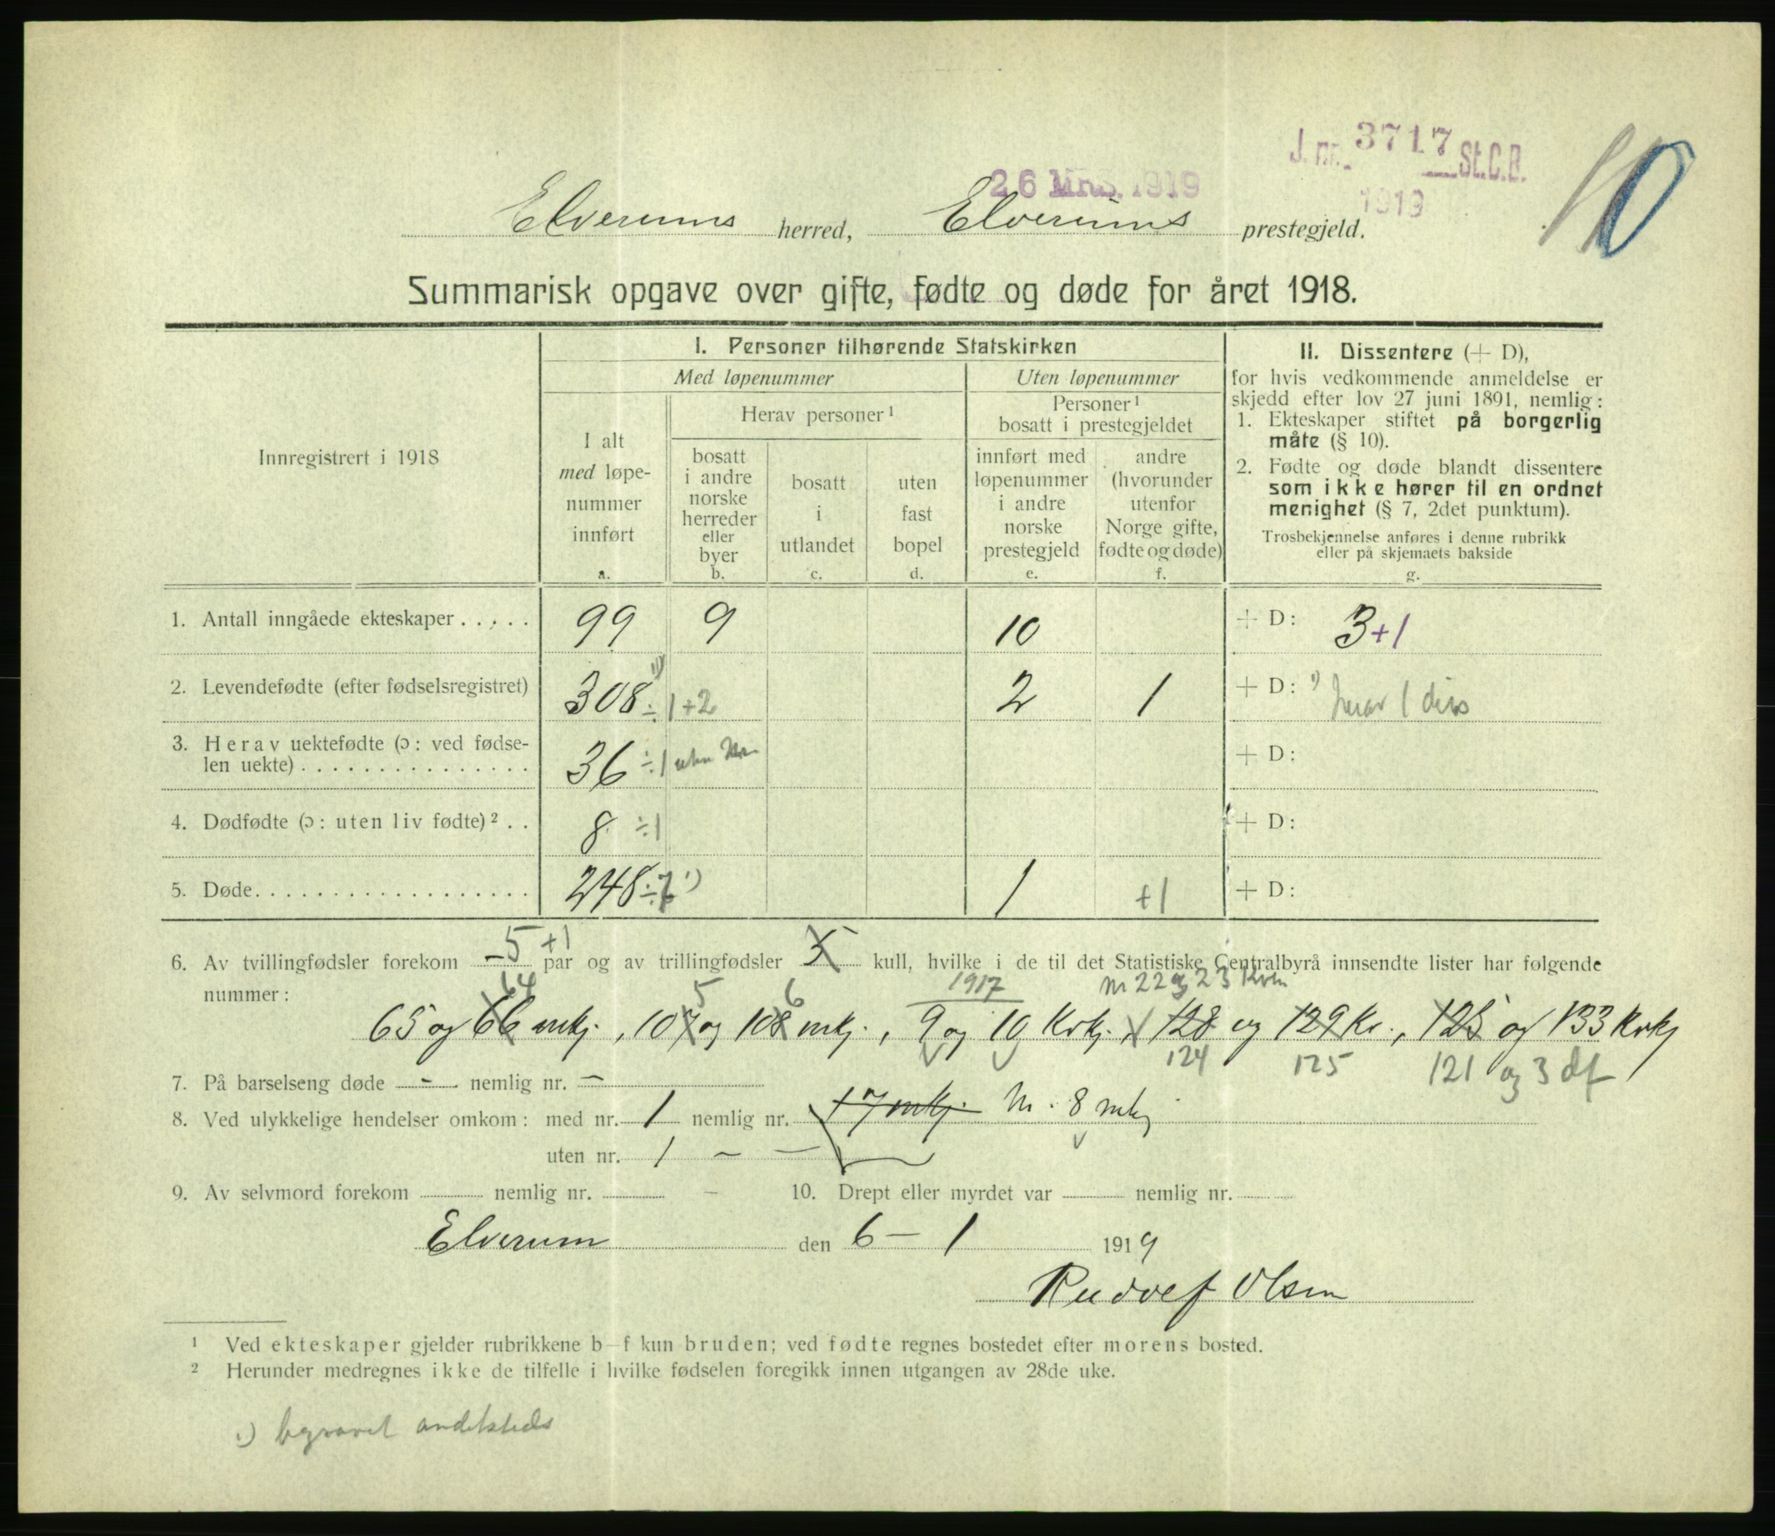 J. nr. 3717 St.C.B.
1919
26 MRS. 1919
10
Elverums herred, Elverums prestegjeld.
Summarisk opgave over gifte, fødte og døde for året 1918.
Innregistrert i 1918
I. Personer tilhørende Statskirken
Med løpenummer
Uten løpenummer
I alt
med løpe-
nummer
innført
a.
Herav personer ¹
bosatt
i andre
norske
herreder
eller
byer
b.
bosatt
i
utlandet
c.
uten
fast
bopel
d.
Personer ¹
bosatt i prestegjeldet
innført med
løpenummer
i andre
norske
prestegjeld
e.
andre
(hvorunder
utenfor
Norge gifte,
fødte og døde)
f.
II. Dissentere (+ D),
for hvis vedkommende anmeldelse er
skjedd efter lov 27 juni 1891, nemlig:
1. Ekteskaper stiftet på borgerlig
måte (§ 10).
2. Fødte og døde blandt dissentere
som ikke hører til en ordnet
menighet (§ 7, 2det punktum).
Trosbekjennelse anføres i denne rubrikk
eller på skjemaets bakside
g.
1. Antall inngåede ekteskaper . . . . . 99 9 10 + D: 3+1
2. Levendefødte (efter fødselsregistret) 308 ¹) ÷1+2 2 1 + D: ¹) herav 1 diss
3. Herav uektefødte (ɔ: ved fødse-
len uekte) . . . . . . . . . . . . . . . 36 ÷1 uten Nr. + D:
4. Dødfødte (ɔ: uten liv fødte) ² . . 8 ÷1 + D:
5. Døde. . . . . . . . . . . . . . . . . . 248 ÷ ¹) 1 +1 + D:
6. Av tvillingfødsler forekom 5 +1 par og av trillingfødsler kull, hvilke i de til det Statistiske Centralbyrå innsendte lister har følgende
nummer:
64 5 6 1917 nr 22 og 23 Kvk
65 og 66 mkj., 107 og 108 mkj., 9 og 10 Kvkj., 128 og 129 Kv., 125 og 133 Kvkj
124 125 121 og 3 df
7. På barselseng døde - nemlig nr. -
8. Ved ulykkelige hendelser omkom: med nr. 1 nemlig nr. 17 mkj. Nr. 8 mkj
uten nr. 1 - -
9. Av selvmord forekom nemlig nr. - 10. Drept eller myrdet var nemlig nr.
Elverum den 6 - 1 1919
Rudolf Olsen
¹ Ved ekteskaper gjelder rubrikkene b—f kun bruden; ved fødte regnes bostedet efter morens bosted.
² Herunder medregnes ikke de tilfelle i hvilke fødselen foregikk innen utgangen av 28de uke.
¹) begravet andetsteds